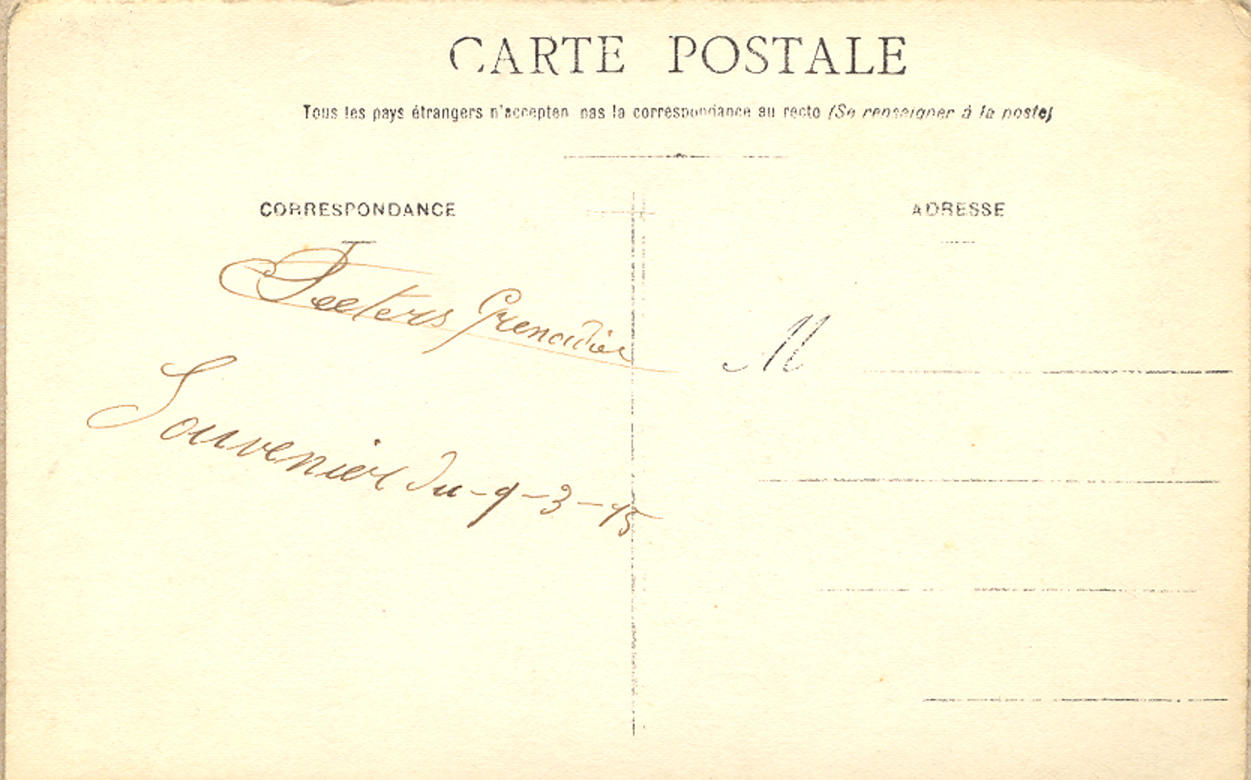 CARTE POSTALE
Tous les pays étrangers n'acceptent pas la correspondance au recto (Se renseigner à la poste)
CORRESPONDANCE
ADRESSE
Peeters Grenadier
M
Souvenier du - 9 - 3 - 15